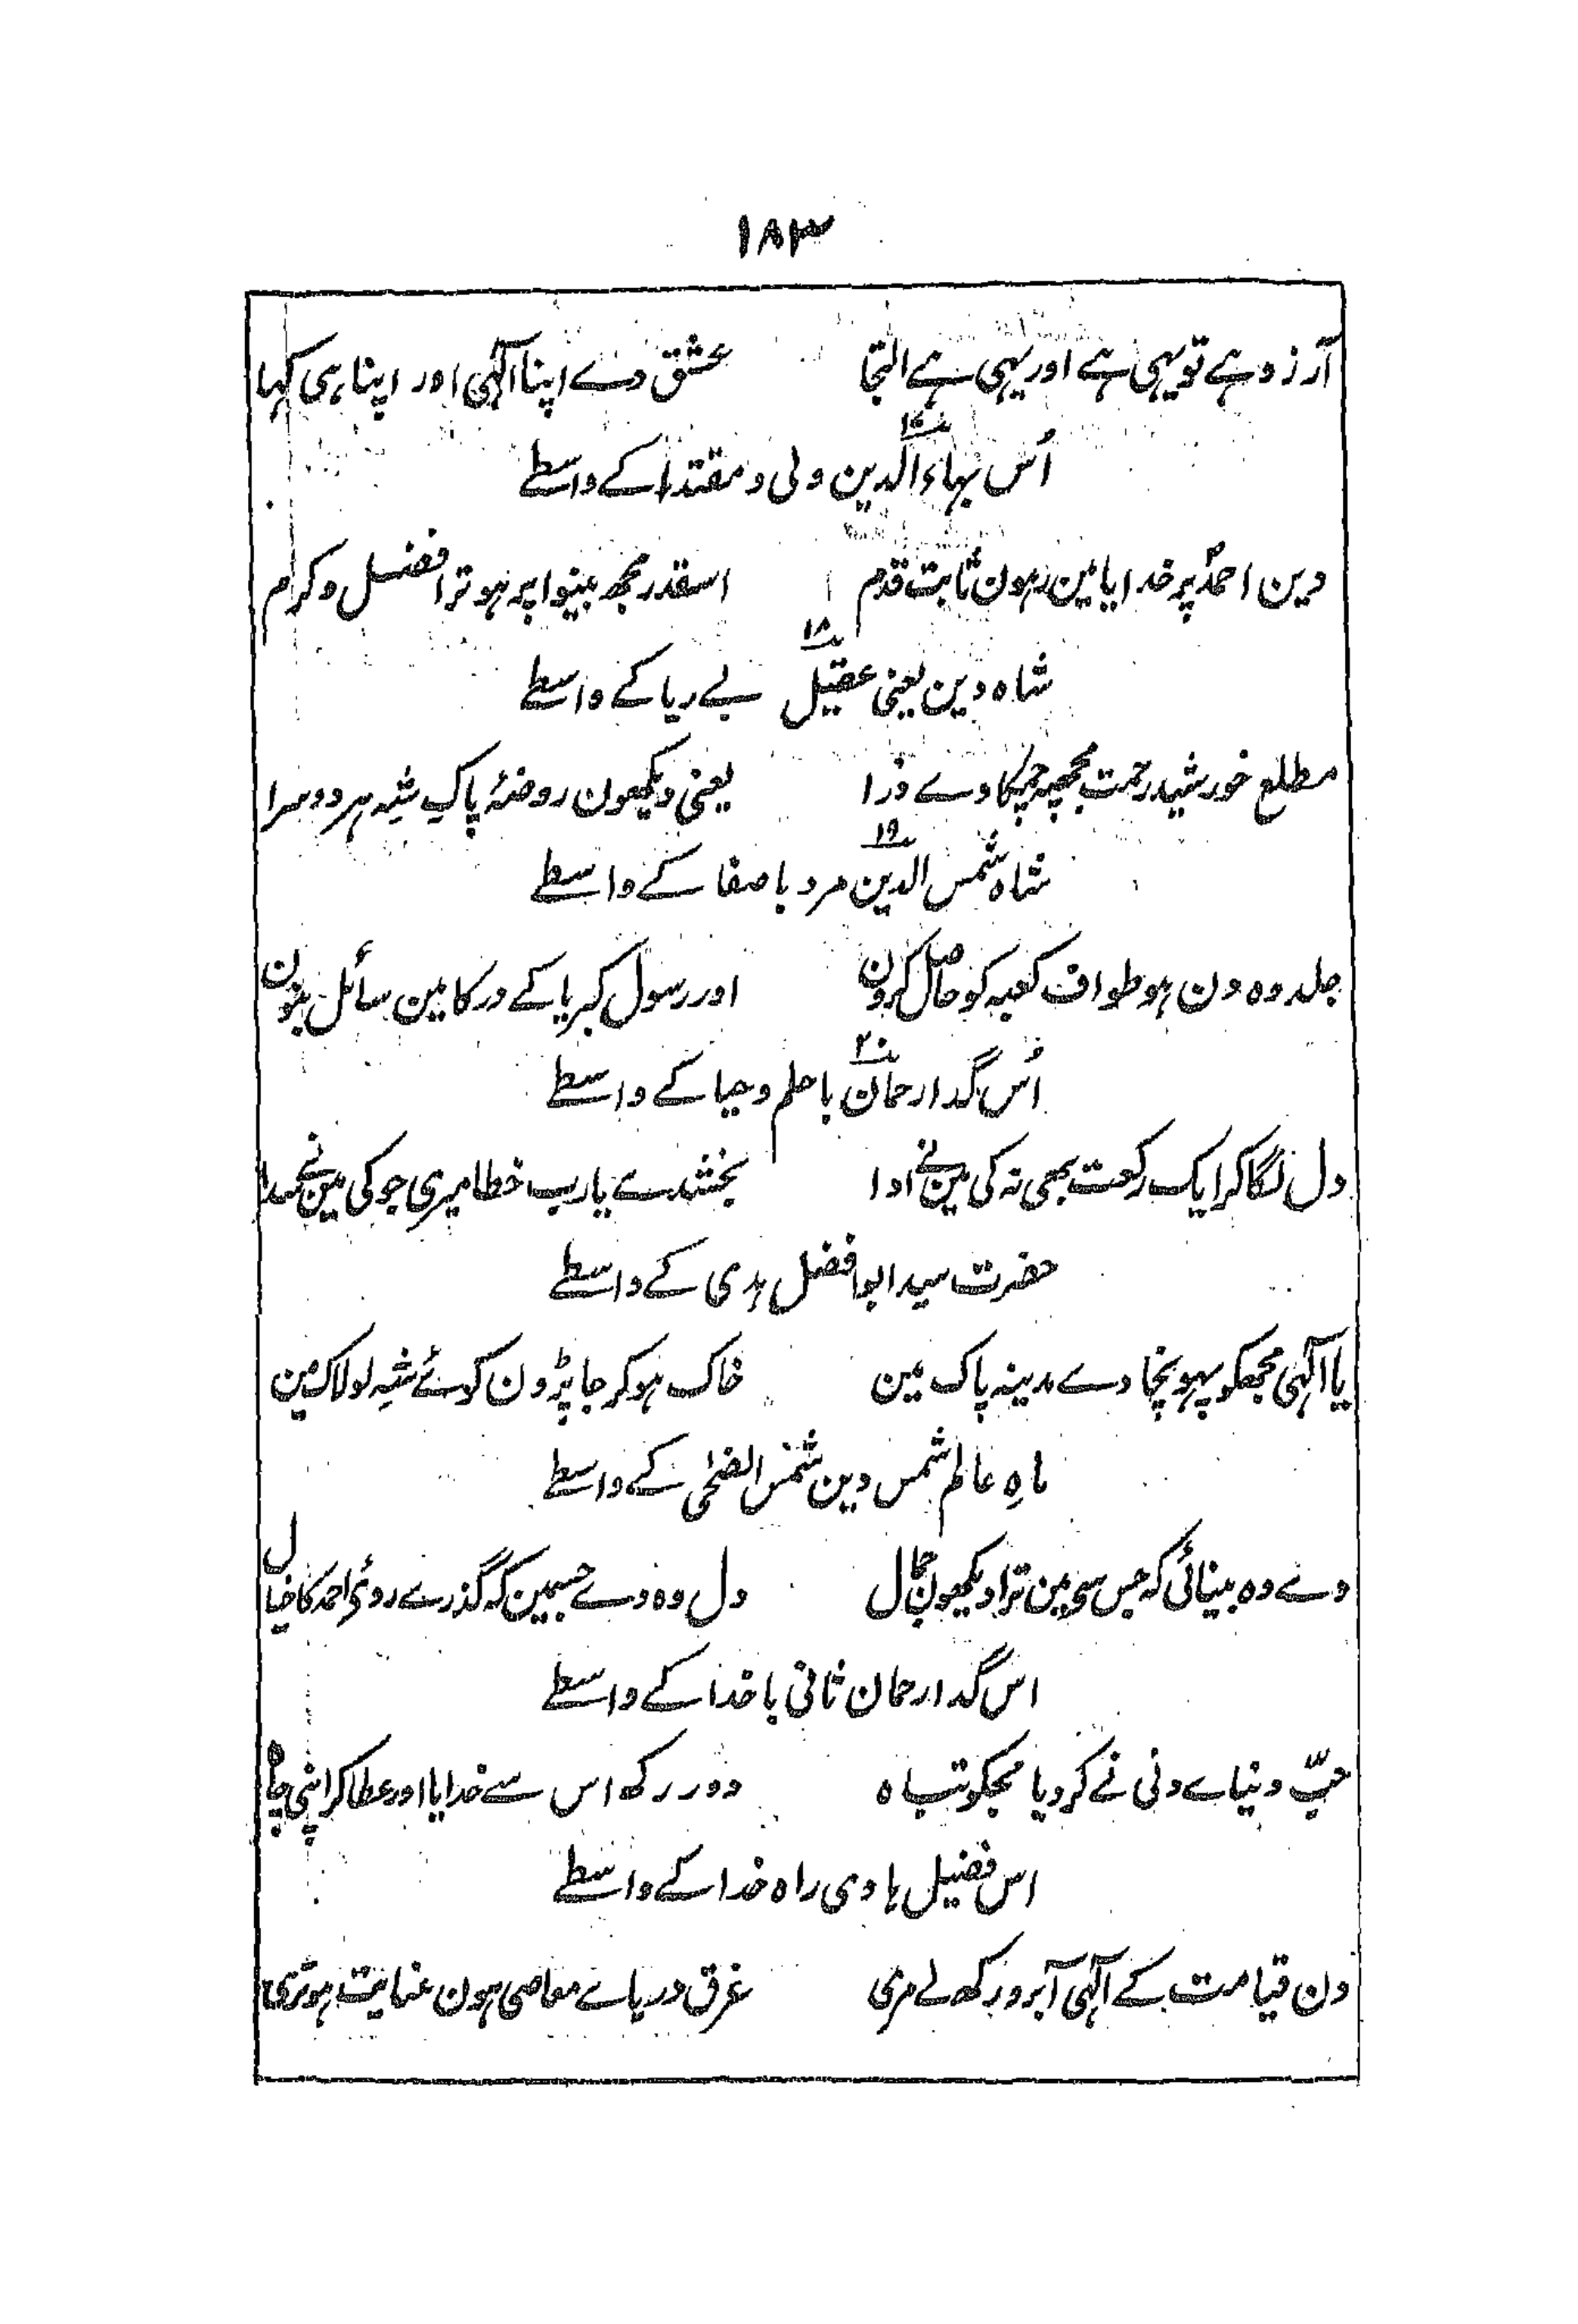 ۱۸۳
آرزو ہے تو یہی ہے اور یہی ہے التجا عشق دے اپنا الٰہی اور اپنا ہی کہا
۱۷
اُس بہاء الدین ولی و مقتدا کے واسطے
دین احمدؐ پر خدایا مین رہون ثابت قدم اسقدر مجھ بینوا پر ہو ترا فضل و کرم
۱۸
شاہ دین یعنی عقیل بے ریا کے واسطے
مطلع خورشید رحمت مجھپہ چمکا دے ذرا یعنی دیکھون روضۂ پاکِ شہِ ہر دوسرا
۱۹
شاہ شمس الدین مرد باصفا کے واسطے
جلد وہ دن ہو طواف کعبہ کو حاصل کرون اور رسول کبریا کے در کا مین سائل بنون
۲۰
اُس گدا رحمان با حلم و حیا کے واسطے
دل لگا کر ایک رکعت بھی نہ کی مین نے ادا بخشدے یارب خطا میری جو کی مین نے سدا
حضرت سید ابو افضل ہدی کے واسطے
یا الٰہی مجھکو پہونچا دے مدینہ پاک مین خاک ہو کر جا پڑون کوئے شہِ لولاک مین
ماہِ عالم شمس دین شمس الضحٰی کے واسطے
دے وہ بینائی کہ جس سی مین ترا دیکھون جمال دل وہ دے جسمین کہ گذرے روئ احمد کا خیال
اس گدا رحمان ثانی با خدا کے واسطے
حبّ دنیاے دنی نے کر دیا مجکو تباہ دور رکھ اس سے خدایا اور عطا کر اپنی چاہ
اس فضیل ہادی راہ خدا کے واسطے
دن قیامت کے الٰہی آبرو رکھ لے مری غرق دریاے معاصی ہون عنایت ہو تری